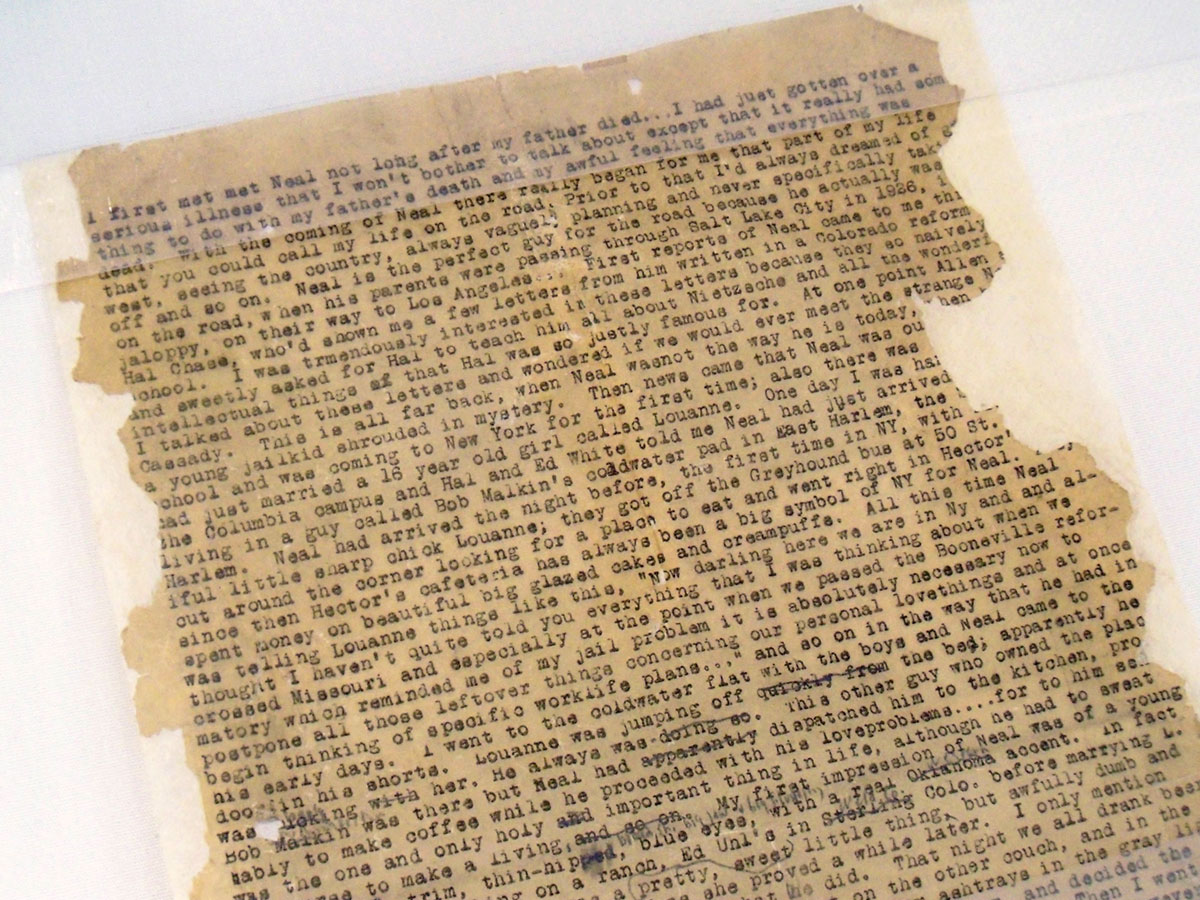 I first met met Neal not long after my father died...I had just gotten over a
serious illness that I won't bother to talk about except that it really had som
thing to do with my father's death and my awful feeling that everything was
dead. With the coming of Neal there really began for me that part of my life
that you could call my life on the road. Prior to that I'd always dreamed of g
west, seeing the country, always vaguely planning and never specifically tak
off and so on. Neal is the perfect guy for the road because he actually was
on the road, when his parents were passing through Salt Lake City in 1926, i
jaloppy, on their way to Los Angeles... First reports of Neal came to me th
Hal Chase, who'd shown me a few letters from him written in a Colorado reform
school. I was tremendously interested in these letters because they so naively
and sweetly asked for Hal to teach him all about Nietzsche and all the wonderf
intellectual things that Hal was so justly famous for. At one point Allen
I talked about these letters and wondered if we would ever meet the strange N
Cassady. This is all far back, when Neal wasnot the way he is today, hen
a young jailkid shrouded in mystery. Then news came that Neal was ou
chool and was coming to New York for the first time; also there was
ad just married a 16 year old girl called Louanne. One day I was ha
the Columbia campus and Hal and Ed White told me Neal had just arrived
living in a guy called Bob Malkin's coldwater pad in East Harlem, the
Harlem. Neal had arrived the night before, the first time in NY, with
iful little sharp chick Louanne; they got off the Greyhound bus at 50 St.
cut around the corner looking for a place to eat and went right in Hector'
since then Hector's cafeteria has always been a big symbol of NY for Neal.
spent money on beautiful big glazed cakes and creampuffs. All this time Neal
was telling Louanne things like this, "Now darling here we are in Ny and and al-
thought I haven't quite told you everything that I was thinking about when we
crossed Missouri and especially at the point when we passed the Booneville refor-
matory which reminded me of my jail problem it is absolutely necessary now to
postpone all those leftover things concerning our personal lovethings and at once
begin thinking of specific worklife plans..." and so on in the way that he had in
his early days. I went to the coldwater flat with the boys and Neal came to the
doo in his shorts. Louanne was jumping off quickly from the bed; apparently he
was with her. He always was doing so. This other guy who owned the plac
Bob Malkin was there but Neal had apparently dispatched him to the kitchen, pro
bably to make coffee while he proceeded with his loveproblems....for to him
was the one and only holy and important thing in life, although he had to sweat
to make a living and so on. My first impression of Neal was of a young
trim, thin-hipped, blue eyes, with a real Oklahoma accent. In fact
ng on a ranch, Ed Uhl's in Sterling Colo. before marrying L.
a pretty, sweet little thing, but awfully dumb and
she proved a while later. I only mention
he did. That night we all drank bee
on the other couch, and in the
ashtrays in the gray li
and decided the
Then I went